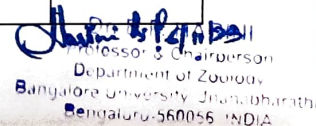 Professor & Chairperson
Department of Zoology
Bangalore University Jnanabharathi
Bengaluru-560056 INDIA